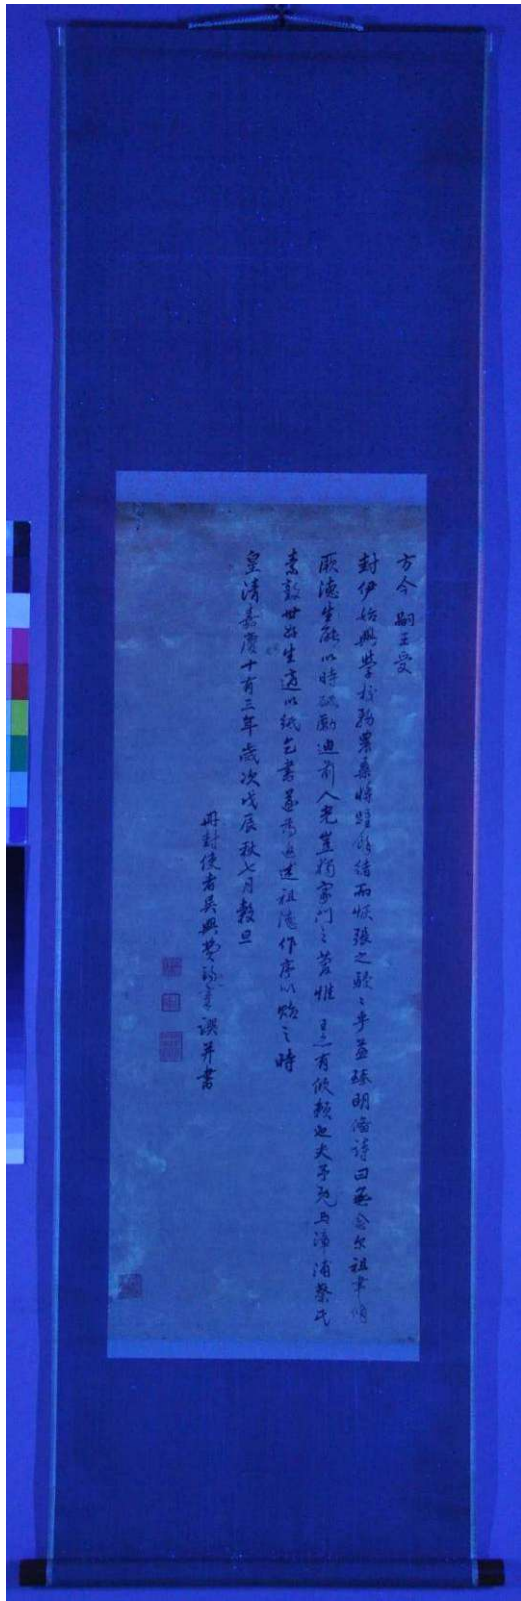 方今 嗣王受
封伊始興學校務農桑將踵緒而恢張之駸〻乎益臻明備詩曰無念尔祖聿脩
厥德生能以時砥勵迪前人光豈獨家門之慶惟 王亦有攸賴也夫予既与漳浦蔡氏
素敦世好生適以紙乞書爰為追述祖德作序以貽之時
皇清嘉慶十有三年歲次戊辰秋七月穀旦
冊封使者吳興費錫章譔并書